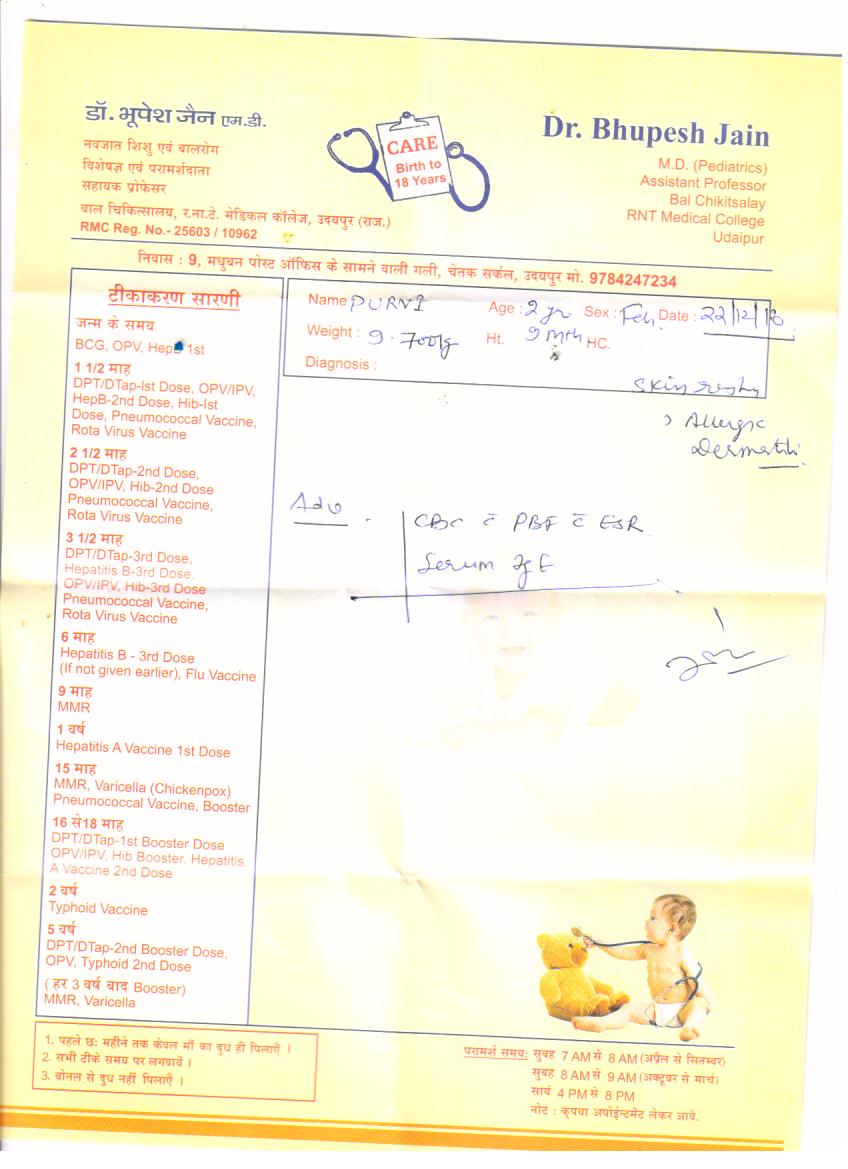 डॉ. भूपेश जैन एम.डी.
नवजात शिशु एवं बालरोग
विशेषज्ञ एवं परामर्शदाता
सहायक प्रोफेसर
बाल चिकित्सालय, र.ना.टे. मेडिकल कॉलेज, उदयपुर (राज.)
RMC Reg. No.- 25603 / 10962
CARE
Birth to
18 Years
Dr. Bhupesh Jain
M.D. (Pediatrics)
Assistant Professor
Bal Chikitsalay
RNT Medical College
Udaipur
निवास : 9, मधुबन पोस्ट ऑफिस के सामने वाली गली, चेतक सर्कल, उदयपुर मो. 9784247234
टीकाकरण सारणी
जन्म के समय
BCG, OPV, HepB 1st
1 1/2 माह
DPT/DTap-Ist Dose, OPV/IPV,
HepB-2nd Dose, Hib-Ist
Dose, Pneumococcal Vaccine,
Rota Virus Vaccine
2 1/2 माह
DPT/DTap-2nd Dose,
OPV/IPV, Hib-2nd Dose
Pneumococcal Vaccine,
Rota Virus Vaccine
3 1/2 माह
DPT/DTap-3rd Dose,
Hepatitis B-3rd Dose,
OPV/IPV, Hib-3rd Dose
Pneumococcal Vaccine,
Rota Virus Vaccine
6 माह
Hepatitis B - 3rd Dose
(If not given earlier), Flu Vaccine
9 माह
MMR
1 वर्ष
Hepatitis A Vaccine 1st Dose
15 माह
MMR, Varicella (Chickenpox)
Pneumococcal Vaccine, Booster
16 से18 माह
DPT/DTap-1st Booster Dose
OPV/IPV, Hib Booster, Hepatitis
A Vaccine 2nd Dose
2 वर्ष
Typhoid Vaccine
5 वर्ष
DPT/DTap-2nd Booster Dose,
OPV, Typhoid 2nd Dose
( हर 3 वर्ष बाद Booster)
MMR, Varicella
Name PURVI Age : 2 yr Sex : Feh. Date : 22/12/16
Weight : 9.700kg Ht. 9 Mth HC.
Diagnosis :
Skin
Allergic
Dermatiti
Adv
CBC c̄ PBF c̄ ESR
Serum IgE
1. पहले छः महीने तक केवल माँ का दुध ही पिलाएँ ।
2. सभी टीके समय पर लगवावें ।
3. बोतल से दुध नहीं पिलाएँ ।
परामर्श समय: सुबह 7 AM से 8 AM (अप्रैल से सितम्बर)
सुबह 8 AM से 9 AM (अक्टूबर से मार्च)
सायं 4 PM से 8 PM
नोट : कृपया अपोईन्टमेंट लेकर आवे.